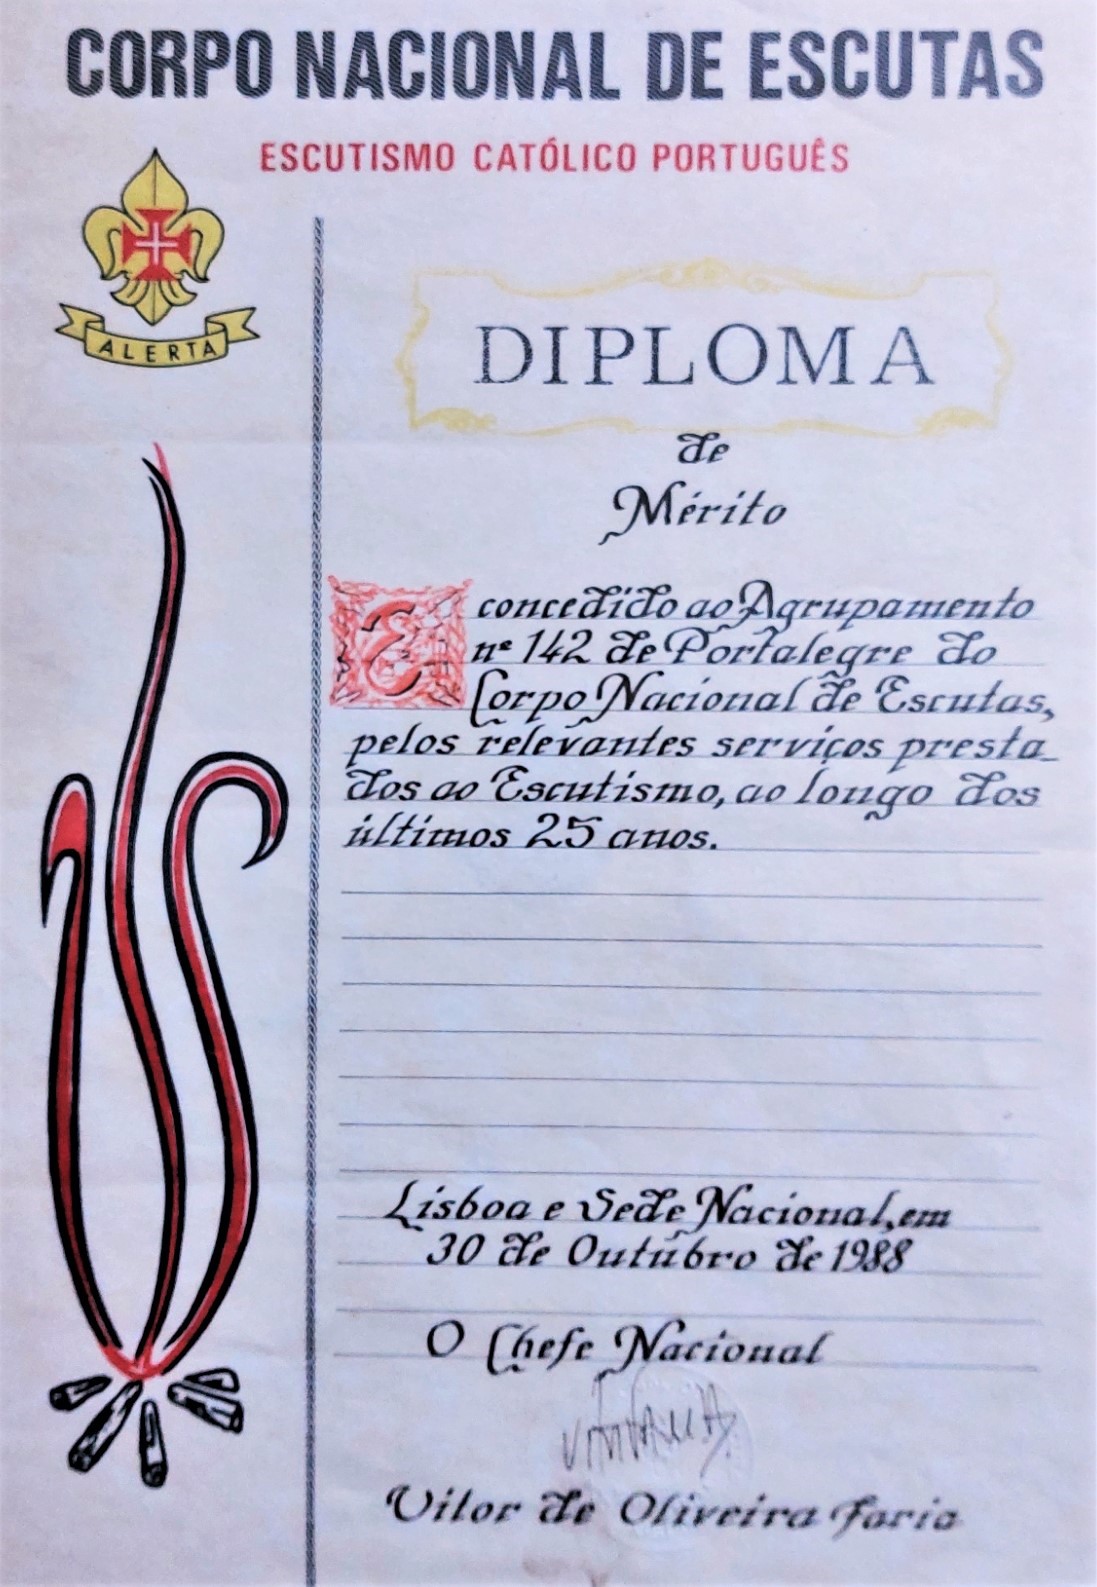 CORPO NACIONAL DE ESCUTAS
ESCUTISMO CATÓLICO PORTUGUÊS
ALERTA
DIPLOMA
de
Mérito
É concedido ao Agrupamento
nº 142 de Portalegre do
Corpo Nacional de Escutas,
pelos relevantes serviços presta_
dos ao Escutismo, ao longo dos
últimos 25 anos.
Lisboa e Sede Nacional, em
30 de Outubro de 1988
O Chefe Nacional
Vitor de Oliveira Faria